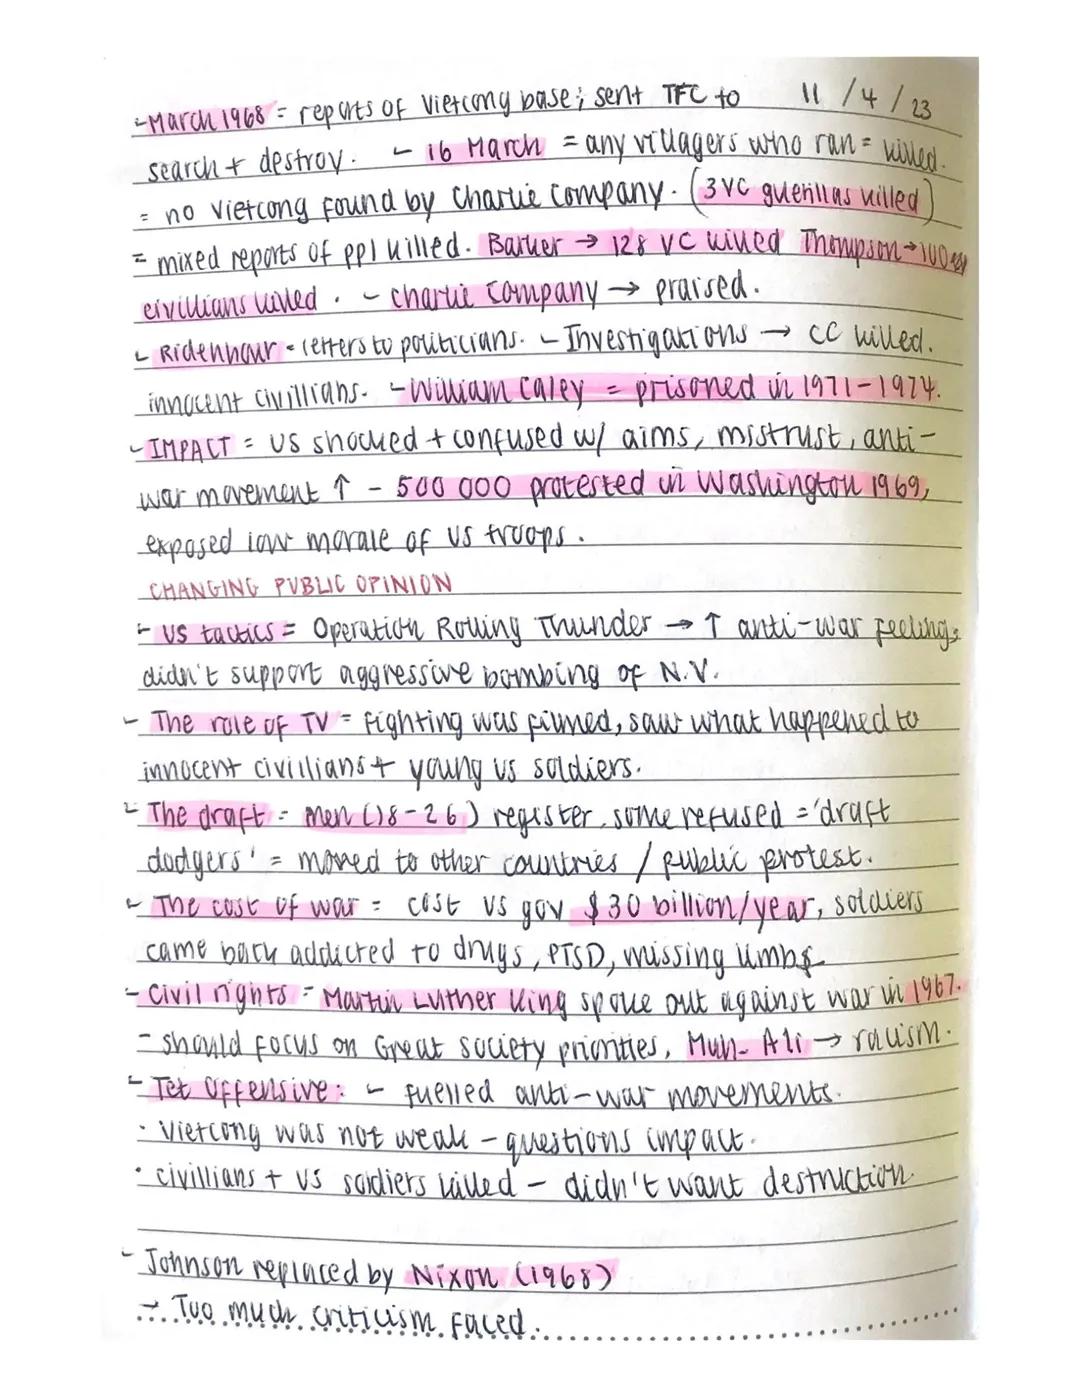 -March 1968 = reports of Vietcong base; sent TFC to 11/4/23
search + destroy. - 16 March = any villagers who ran = killed.
= no Vietcong found by Charlie Company. (3 VC guerillas killed)
= mixed reports of ppl killed. Barker → 128 VC killed Thompson → 100
civillians killed. - Charlie Company → praised.
- Ridenhour - letters to politicians. - Investigations → CC killed.
innocent civillians. - William Caley = prisoned in 1971-1974.
- IMPACT = US shocked + confused w/ aims, mistrust, anti-
war movement ↑ - 500 000 protested in Washington 1969,
exposed low morale of US troops.
CHANGING PUBLIC OPINION
- US tactics = Operation Rolling Thunder → ↑ anti-war feeling,
didn't support aggressive bombing of N.V.
- The role of TV = fighting was filmed, saw what happened to
innocent civillians + young US soldiers.
- The draft = men (18-26) register, some refused = 'draft
dodgers' = moved to other countries / public protest.
- The cost of war = cost US gov $30 billion/year, soldiers
came back addicted to drugs, PTSD, missing limbs
- Civil rights = Martin Luther King spoke out against war in 1967.
- should focus on Great Society priorities, Muh. Ali → racism.
- Tet Offensive: - fuelled anti-war movements.
· Vietcong was not weak - questions impact.
· civillians + US soldiers killed - didn't want destruction.
- Johnson replaced by Nixon (1968)
→ Too much criticism faced.